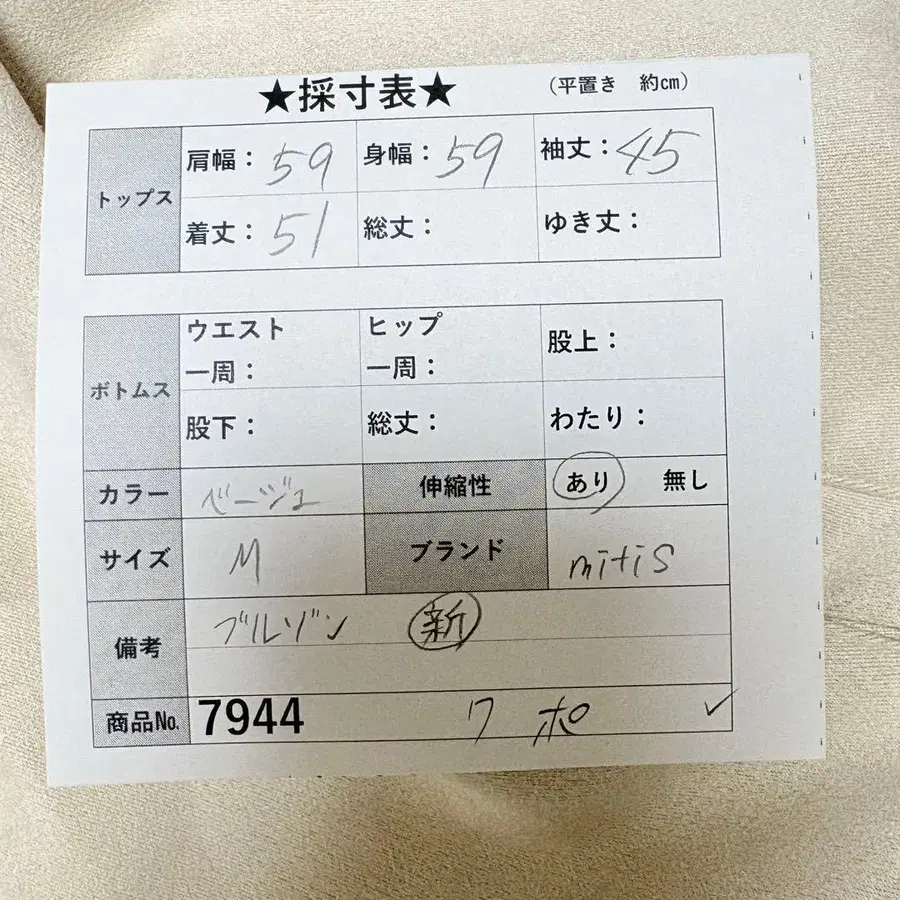 ★採寸表★ （平置き 約㎝）
トップス 肩幅：59 身幅：59 袖丈：45
着丈：51 総丈： ゆき丈：
ボトムス ウエスト一周： ヒップ一周： 股上：
股下： 総丈： わたり：
カラー ベージュ 伸縮性 あり 無し
サイズ M ブランド mitis
備考 ブルゾン 新
商品No. 7944 ワ ポ